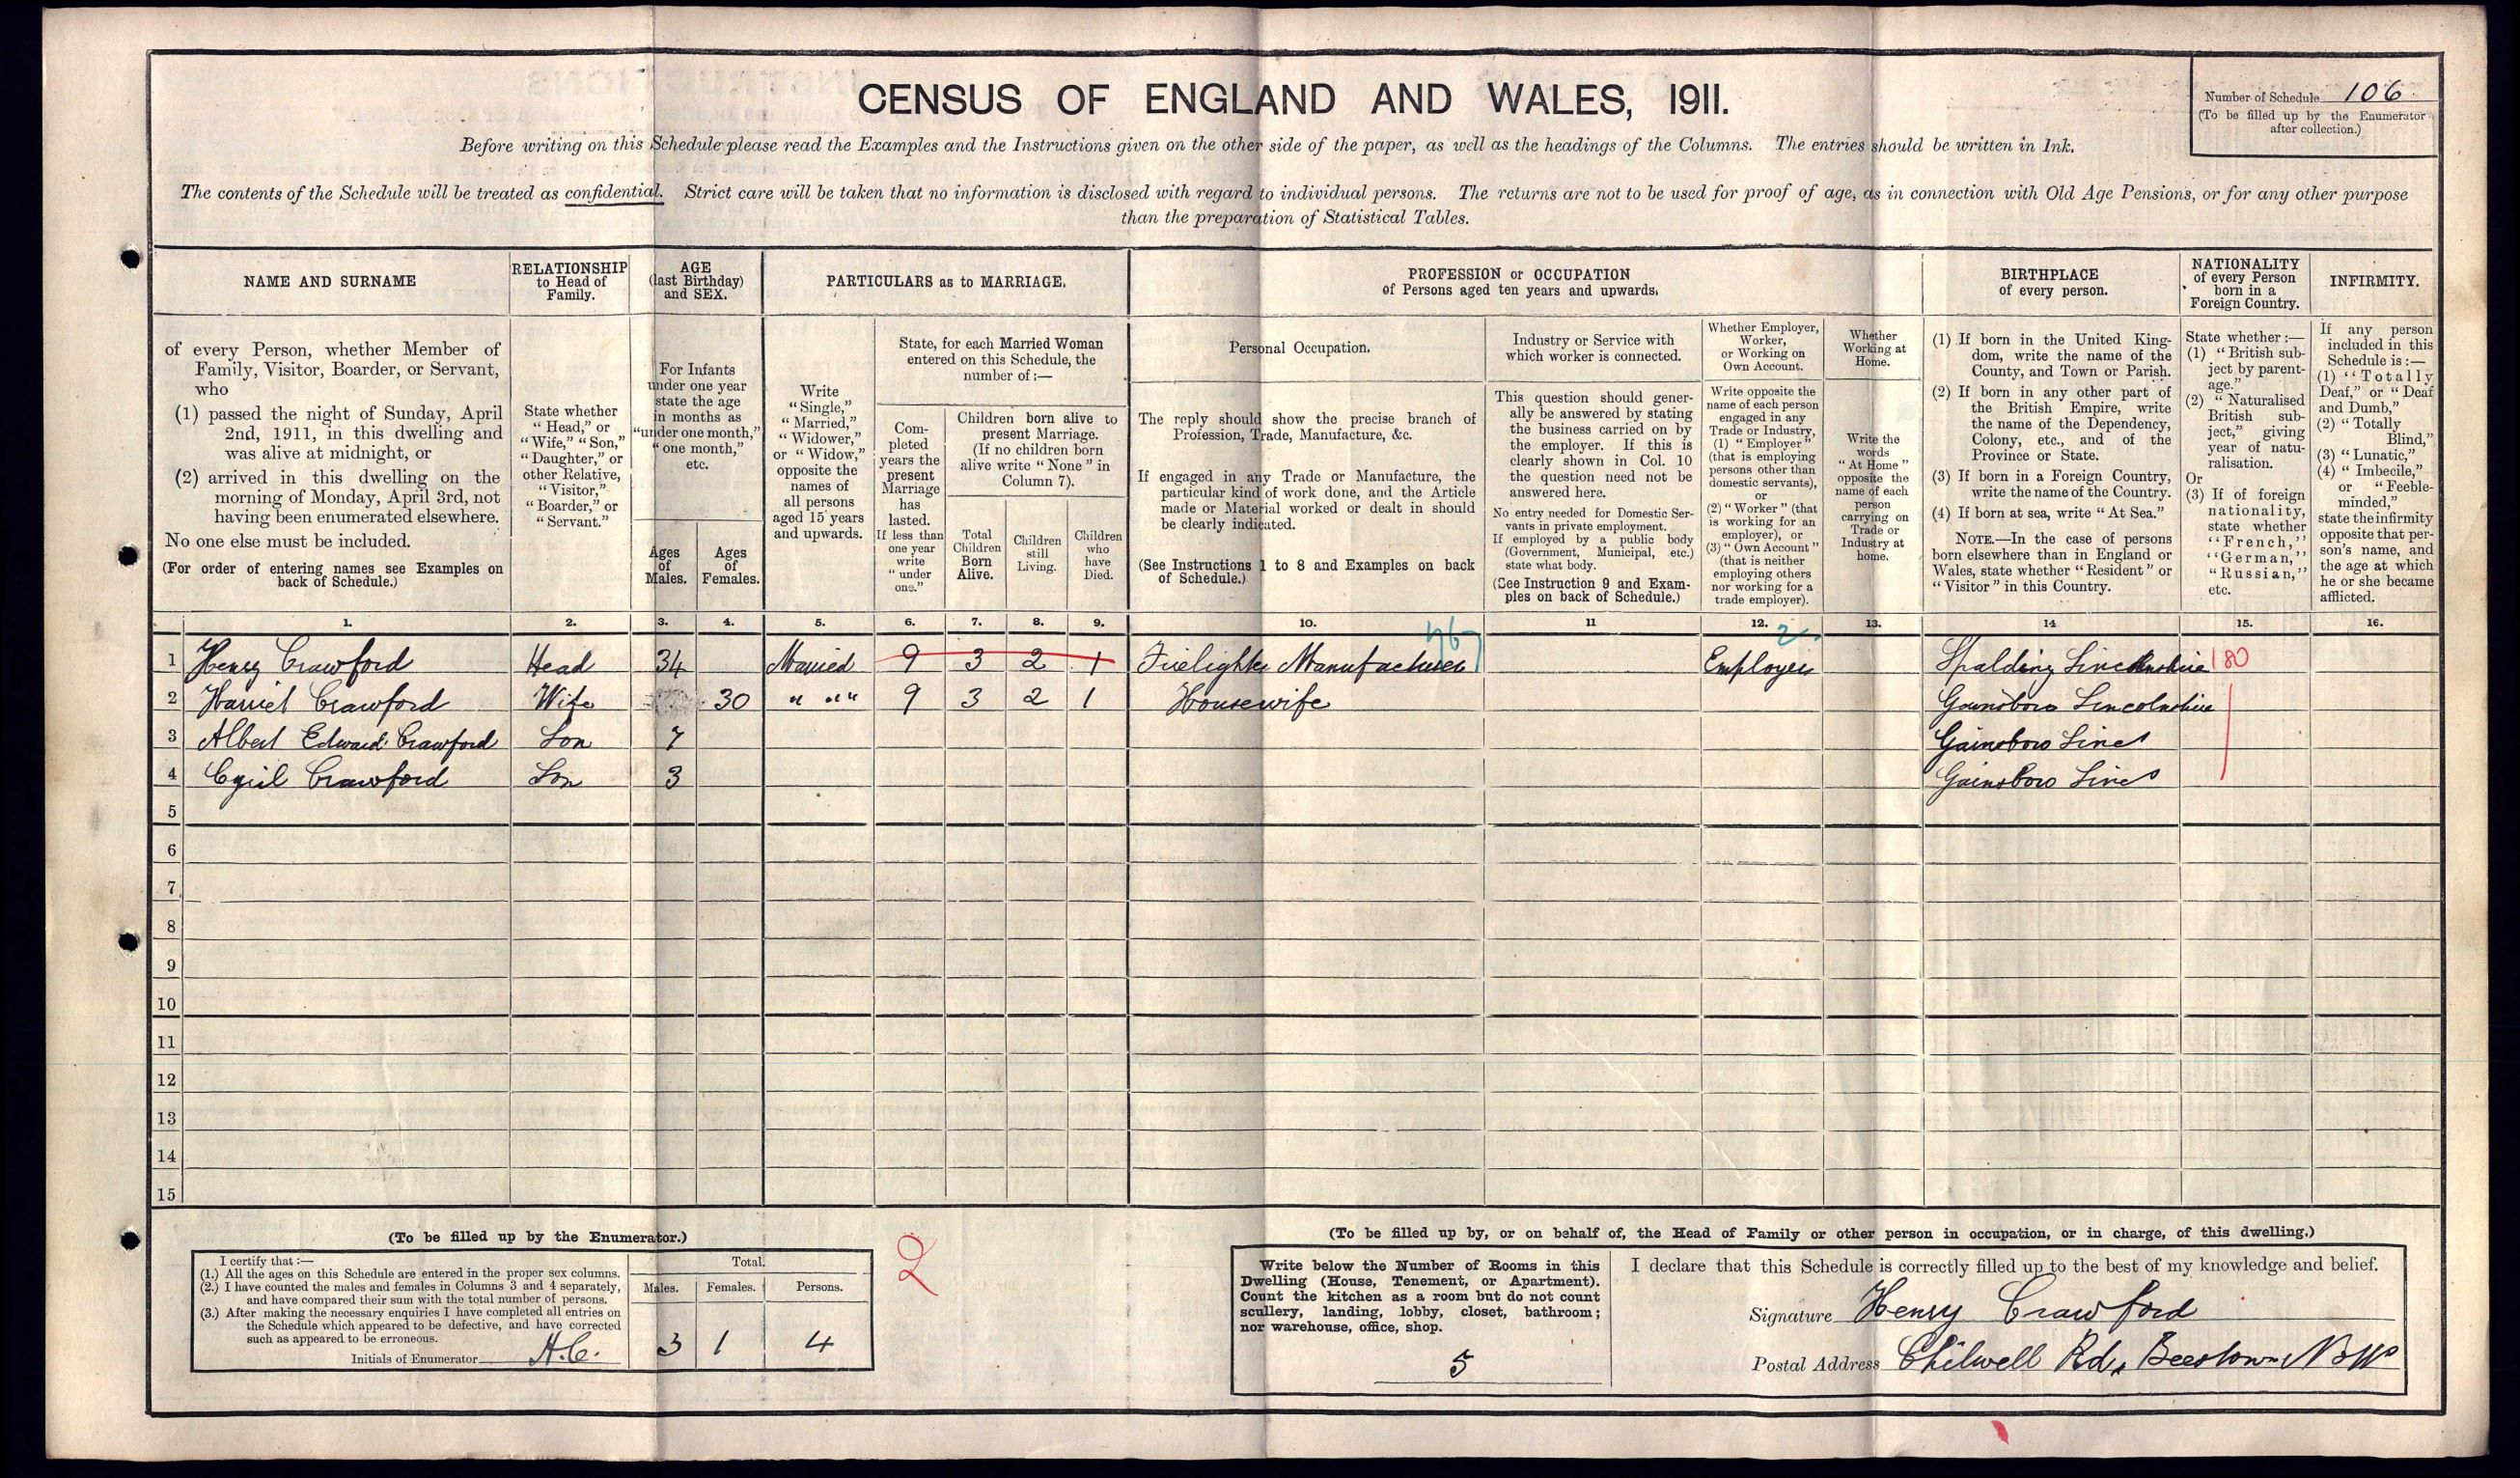 CENSUS OF ENGLAND AND WALES, 1911.
Number of Schedule 106
(To be filled up by the Enumerator
after collection.)
Before writing on this Schedule please read the Examples and the Instructions given on the other side of the paper, as well as the headings of the Columns. The entries should be written in Ink.
The contents of the Schedule will be treated as confidential. Strict care will be taken that no information is disclosed with regard to individual persons. The returns are not to be used for proof of age, as in connection with Old Age Pensions, or for any other purpose
than the preparation of Statistical Tables.
NAME AND SURNAME
of every Person, whether Member of
Family, Visitor, Boarder, or Servant,
who
(1) passed the night of Sunday, April
2nd, 1911, in this dwelling and
was alive at midnight, or
(2) arrived in this dwelling on the
morning of Monday, April 3rd, not
having been enumerated elsewhere.
No one else must be included.
(For order of entering names see Examples on
back of Schedule.)
RELATIONSHIP
to Head of
Family.
State whether
"Head," or
"Wife," "Son,"
"Daughter," or
other Relative,
"Visitor,"
"Boarder," or
"Servant."
AGE
(last Birthday)
and SEX.
For Infants
under one year
state the age
in months as
"under one month,"
"one month,"
etc.
Ages
of
Males.
Ages
of
Females.
PARTICULARS as to MARRIAGE.
Write
"Single,"
"Married,"
"Widower,"
or "Widow,"
opposite the
names of
all persons
aged 15 years
and upwards.
State, for each Married Woman
entered on this Schedule, the
number of:—
Com-
pleted
years the
present
Marriage
has
lasted.
If less than
one year
write
"under
one."
Children born alive to
present Marriage.
(If no children born
alive write "None" in
Column 7).
Total
Children
Born
Alive.
Children
still
Living.
Children
who
have
Died.
PROFESSION or OCCUPATION
of Persons aged ten years and upwards.
Personal Occupation.
The reply should show the precise branch of
Profession, Trade, Manufacture, &c.
If engaged in any Trade or Manufacture, the
particular kind of work done, and the Article
made or Material worked or dealt in should
be clearly indicated.
(See Instructions 1 to 8 and Examples on back
of Schedule.)
Industry or Service with
which worker is connected.
This question should gener-
ally be answered by stating
the business carried on by
the employer. If this is
clearly shown in Col. 10
the question need not be
answered here.
No entry needed for Domestic Ser-
vants in private employment.
If employed by a public body
(Government, Municipal, etc.)
state what body.
(See Instruction 9 and Exam-
ples on back of Schedule.)
Whether Employer,
Worker,
or Working on
Own Account.
Write opposite the
name of each person
engaged in any
Trade or Industry,
(1) "Employer"
(that is employing
persons other than
domestic servants),
or
(2) "Worker" (that
is working for an
employer), or
(3) "Own Account"
(that is neither
employing others
nor working for a
trade employer).
Whether
Working at
Home.
Write the
words
"At Home"
opposite the
name of each
person
carrying on
Trade or
Industry at
home.
BIRTHPLACE
of every person.
(1) If born in the United King-
dom, write the name of the
County, and Town or Parish.
(2) If born in any other part of
the British Empire, write
the name of the Dependency,
Colony, etc., and of the
Province or State.
(3) If born in a Foreign Country,
write the name of the Country.
(4) If born at sea, write "At Sea."
NOTE.—In the case of persons
born elsewhere than in England or
Wales, state whether "Resident" or
"Visitor" in this Country.
NATIONALITY
of every Person
born in a
Foreign Country.
State whether:—
(1) "British sub-
ject by parent-
age."
(2) "Naturalised
British sub-
ject," giving
year of natu-
ralisation.
Or
(3) If of foreign
nationality,
state whether
"French,"
"German,"
"Russian,"
etc.
INFIRMITY.
If any person
included in this
Schedule is:—
(1) "Totally
Deaf," or "Deaf
and Dumb,"
(2) "Totally
Blind,"
(3) "Lunatic,"
(4) "Imbecile,"
or "Feeble-
minded,"
state the infirmity
opposite that per-
son's name, and
the age at which
he or she became
afflicted.
1. 2. 3. 4. 5. 6. 7. 8. 9. 10. 11 12. 13. 14 15. 16.
767 2
1 Henry Crawford Head 34 Married 9 3 2 1 Firelighter Manufacturer Employer Spalding Lincolnshire 180
2 Harriet Crawford Wife 30 " " " 9 3 2 1 Housewife Gainsboro Lincolnshire
3 Albert Edward Crawford Son 7 Gainsboro Lincs
4 Cyril Crawford Son 3 Gainsboro Lincs
5
6
7
8
9
10
11
12
13
14
15
(To be filled up by the Enumerator.)
I certify that:—
(1.) All the ages on this Schedule are entered in the proper sex columns.
(2.) I have counted the males and females in Columns 3 and 4 separately,
and have compared their sum with the total number of persons.
(3.) After making the necessary enquiries I have completed all entries on
the Schedule which appeared to be defective, and have corrected
such as appeared to be erroneous.
Initials of Enumerator H.C.
Total.
Males. Females. Persons.
3 1 4
2
(To be filled up by, or on behalf of, the Head of Family or other person in occupation, or in charge, of this dwelling.)
Write below the Number of Rooms in this
Dwelling (House, Tenement, or Apartment).
Count the kitchen as a room but do not count
scullery, landing, lobby, closet, bathroom;
nor warehouse, office, shop.
5
I declare that this Schedule is correctly filled up to the best of my knowledge and belief.
Signature Henry Crawford
Postal Address Chilwell Rd, Beeston Notts